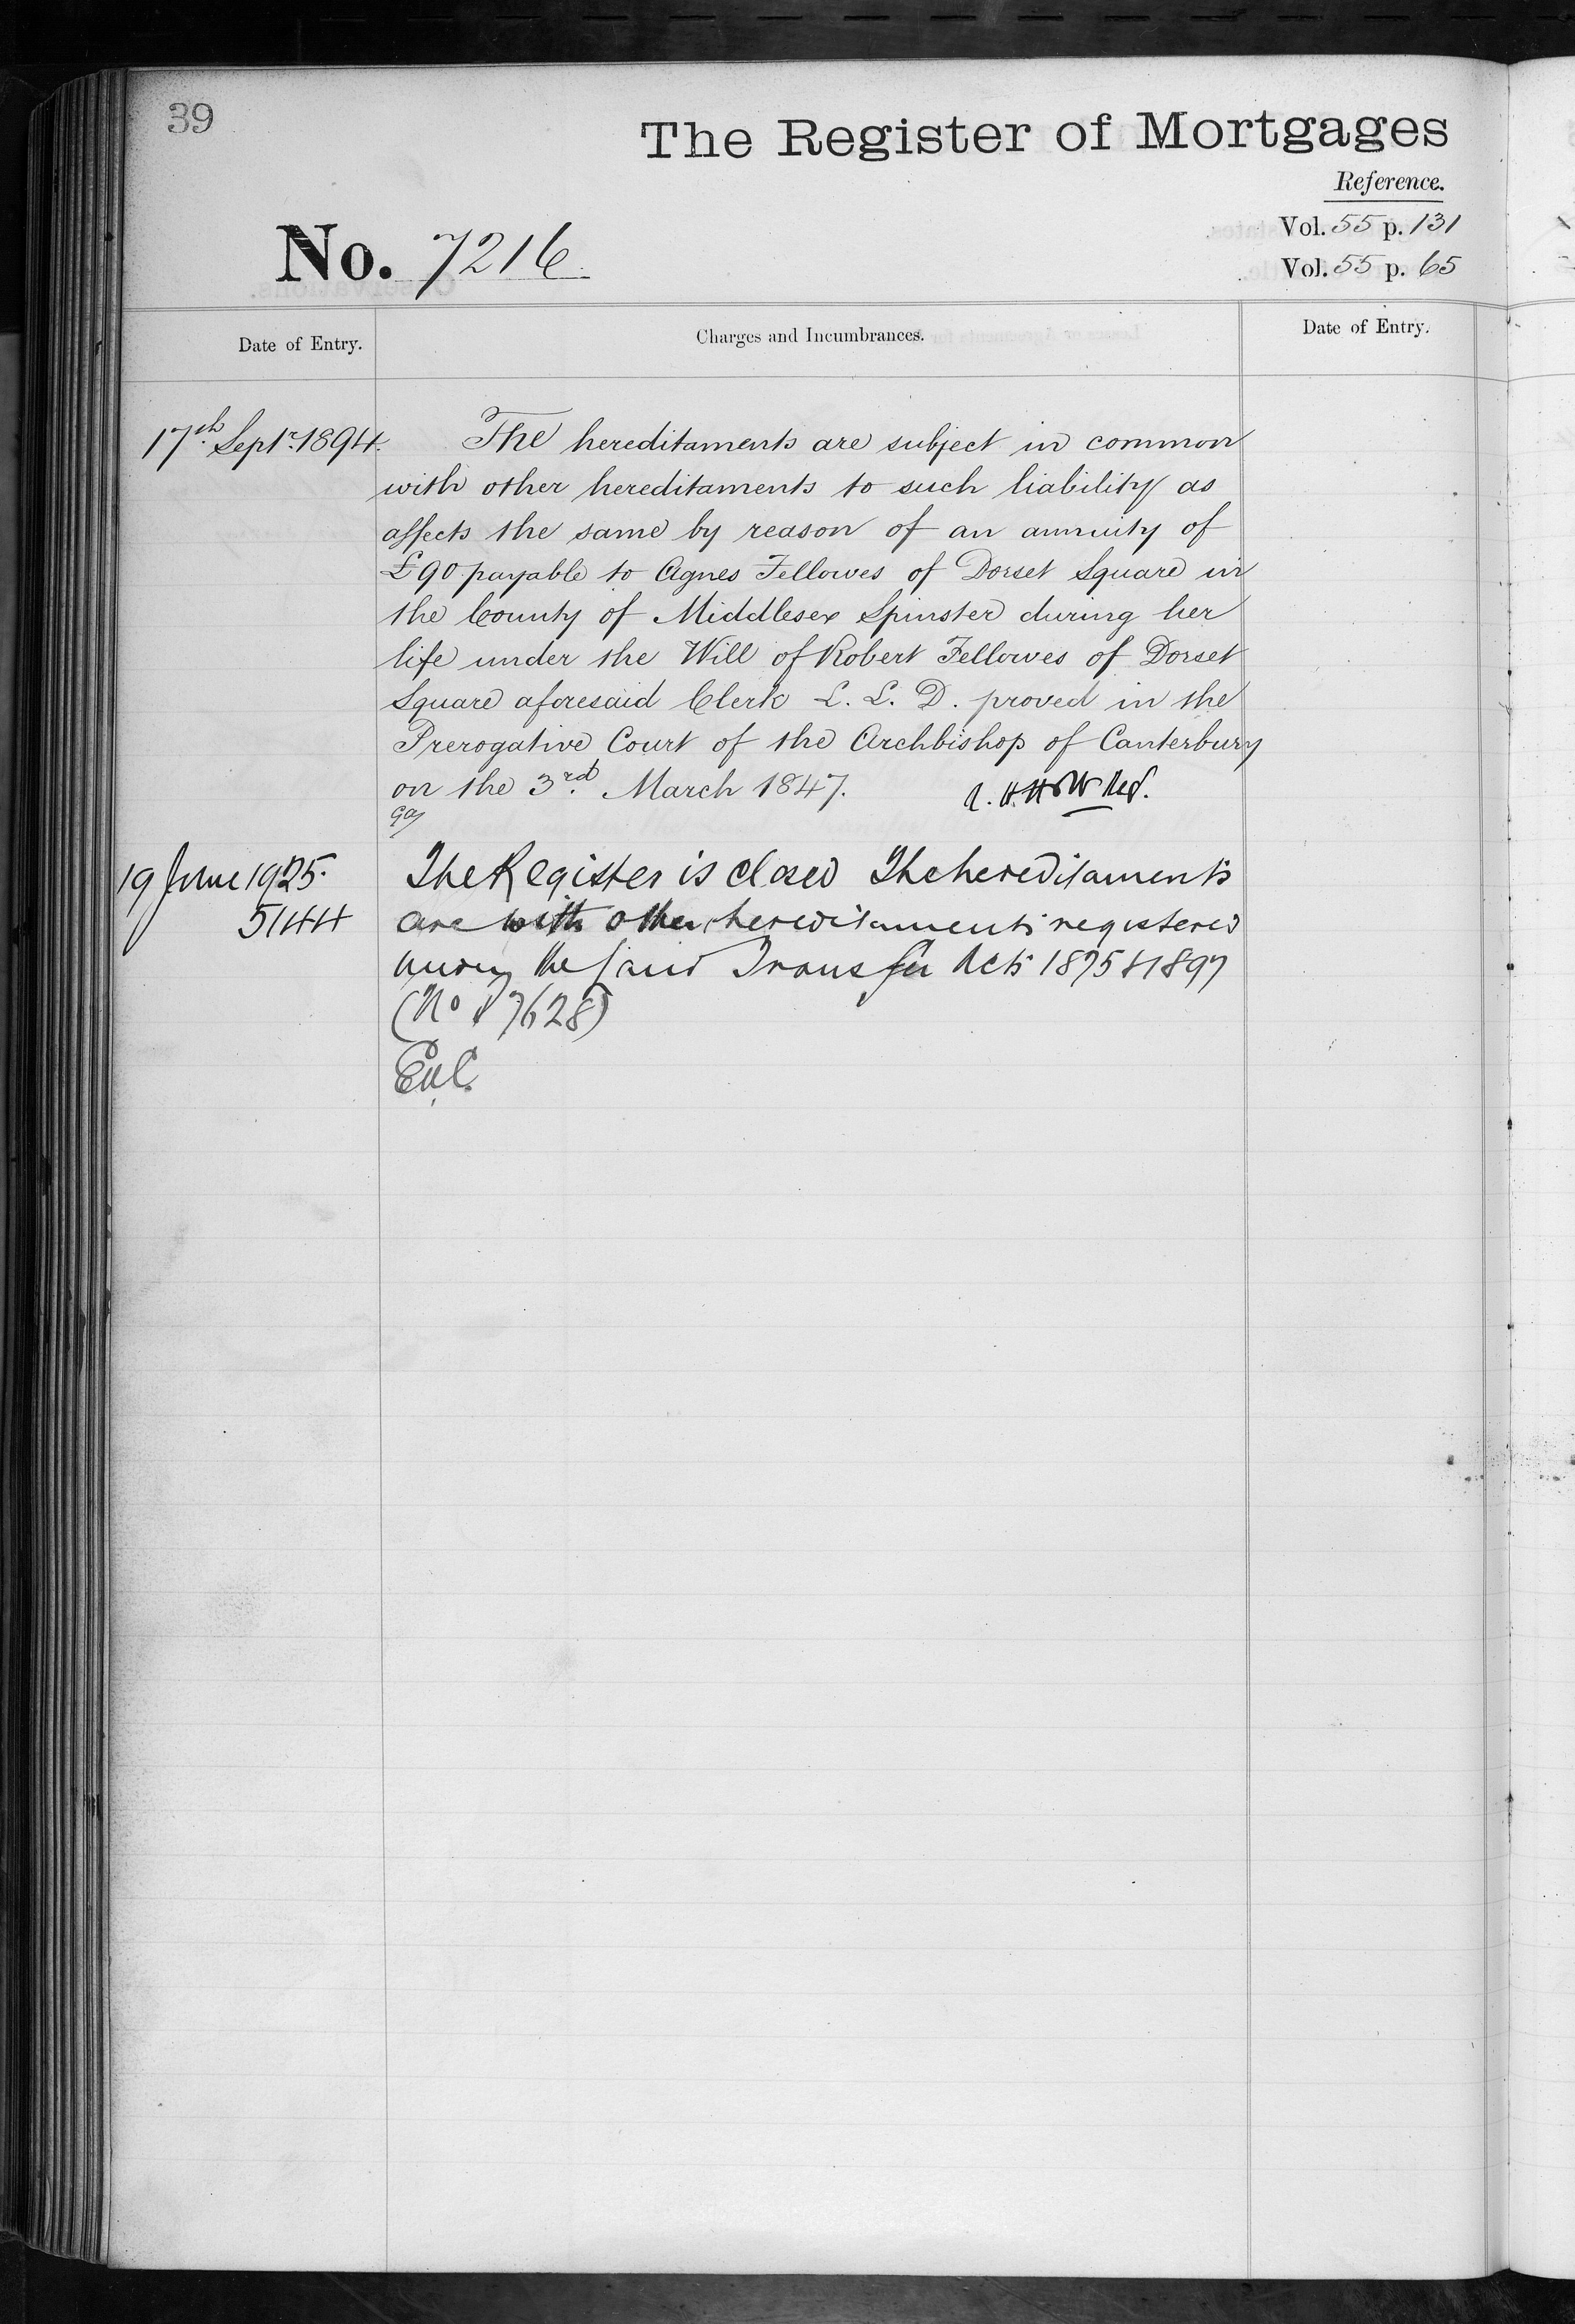 39
The Register of Mortgages
Reference.
Vol. 55 p. 131
No. 7216
Vol. 55 p. 65
Date of Entry.
Charges and Incumbrances.
Date of Entry.
17th Septr 1894.
The hereditaments are subject in common
with other hereditaments to such liability as
affects the same by reason of an annuity of
£90 payable to Agnes Fellowes of Dorset Square in
the County of Middlesex Spinster during her
life under the Will of Robert Fellowes of Dorset
Square aforesaid Clerk L. L. D. proved in the
Prerogative Court of the Archbishop of Canterbury
on the 3rd March 1847.
19 June 1925.
The Register is closed The hereditaments
5144
are with other hereditaments registered
under the Land Transfer Acts 1875 & 1897
(No 7628)